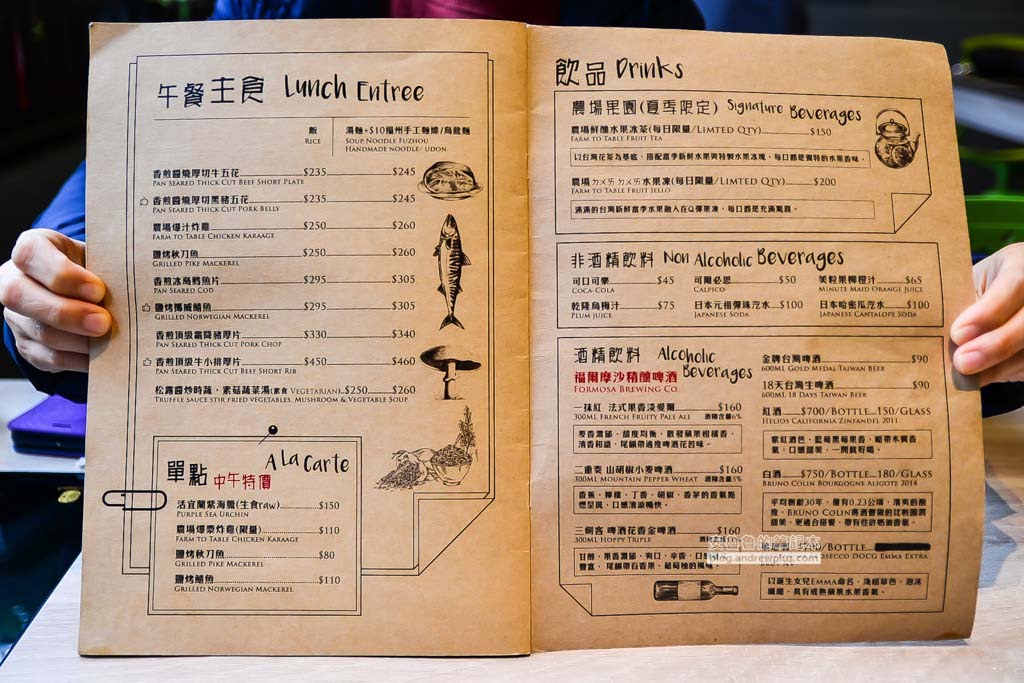 午餐主食 Lunch Entree
飯
RICE
湯麵+$10福州手工麵線/烏龍麵
SOUP NOODLE FUZHOU
HANDMADE NOODLE/ UDON
香煎醬燒厚切牛五花 $235 $245
PAN SEARED THICK CUT BEEF SHORT PLATE
香煎醬燒厚切黑豬五花 $235 $245
PAN SEARED THICK CUT PORK BELLY
農場爆汁炸雞 $250 $260
FARM TO TABLE CHICKEN KARAAGE
鹽烤秋刀魚 $250 $260
GRILLED PIKE MACKEREL
香煎冰島鱈魚片 $295 $305
PAN SEARED COD
鹽烤挪威鯖魚 $295 $305
GRILLED NORWEGIAN MACKEREL
香煎頂級霜降豬厚片 $330 $340
PAN SEARED THICK CUT PORK CHOP
香煎頂級牛小排厚片 $450 $460
PAN SEARED THICK CUT BEEF SHORT RIB
松露醬炒時蔬、素菇蔬菜湯(素食 VEGETARIAN) $250 $260
TRUFFLE SAUCE STIR FRIED VEGETABLES, MUSHROOM & VEGETABLE SOUP
單點 中午特價 A La Carte
活宜蘭紫海膽(生食raw) $150
PURPLE SEA URCHIN
農場爆漿炸雞(限量) $110
FARM TO TABLE CHICKEN KARAAGE
鹽烤秋刀魚 $80
GRILLED PIKE MACKEREL
鹽烤鯖魚 $110
GRILLED NORWEGIAN MACKEREL
飲品 Drinks
農場果園(夏季限定) Signature Beverages
農場鮮釀水果冰茶(每日限量/LIMITED QTY) $150
FARM TO TABLE FRUIT TEA
以台灣花茶為基底，搭配當季新鮮水果與特製水果冰塊，每口都是獨特的水果香味。
農場ㄉㄨㄞㄉㄨㄞ水果凍(每日限量/LIMTED QTY) $200
FARM TO TABLE FRUIT JELLO
滿滿的台灣新鮮當季水果融入在Q彈果凍，每口都是充滿驚喜。
非酒精飲料 Non Alcoholic Beverages
可口可樂 $45
COCA-COLA
可爾必思 $50
CALPICO
美粒果柳橙汁 $65
MINUTE MAID ORANGE JUICE
乾隆烏梅汁 $75
PLUM JUICE
日本元祖彈珠汽水 $100
JAPANESE SODA
日本哈密瓜汽水 $100
JAPANESE CANTALOPE SODA
酒精飲料 Alcoholic Beverages
福爾摩沙精釀啤酒
FORMOSA BREWING CO.
一抹紅 法式果香淡愛爾 $160
300ML FRENCH FRUITY PALE ALE 酒精含量6%
麥香濃郁，甜度均衡，散發蘋果柑橘香，
清香和諧，尾韻帶適度啤酒花苦味。
二重奏 山胡椒小麥啤酒 $160
300ML MOUNTAIN PEPPER WHEAT 酒精含量5%
香蕉、檸檬、丁香、胡椒、香茅的香氣點
燃呈現，口感清涼暢快。
三劍客 啤酒花香金啤酒 $160
300ML HOPPY TRIPLE
甘醇，果香濃郁，爽口，辛香，口
豐富，尾韻帶百香果，葡萄柚的風味
金牌台灣啤酒 $90
600ML GOLD MEDAL TAIWAN BEER
18天台灣生啤酒 $90
600ML 18 DAYS TAIWAN BEER
紅酒 $700/BOTTLE 150/GLASS
HELIOS CALIFORNIA ZINFANDEL 2011
紫紅酒色，藍莓黑莓果香，略帶木質香
氣，口感甜美，一開就好喝。
白酒 $750/BOTTLE 180/GLASS
BRUNO COLIN BOURGOGNE ALIGOTE 2014
平均樹齡30年，僅有0.23公頃，清爽的酸
度，BRUNO COLIN
甜美，更適合搭餐，帶有些許奶油香氣。
700/BOTTLE
PROSECCO DOCG EMMA EXTRA
以誕生女兒EMMA命名，淺稻草色，泡沫
細緻，具有成熟蘋果水果香氣。
安盧魯的筆記本
blog.andrewplus.com